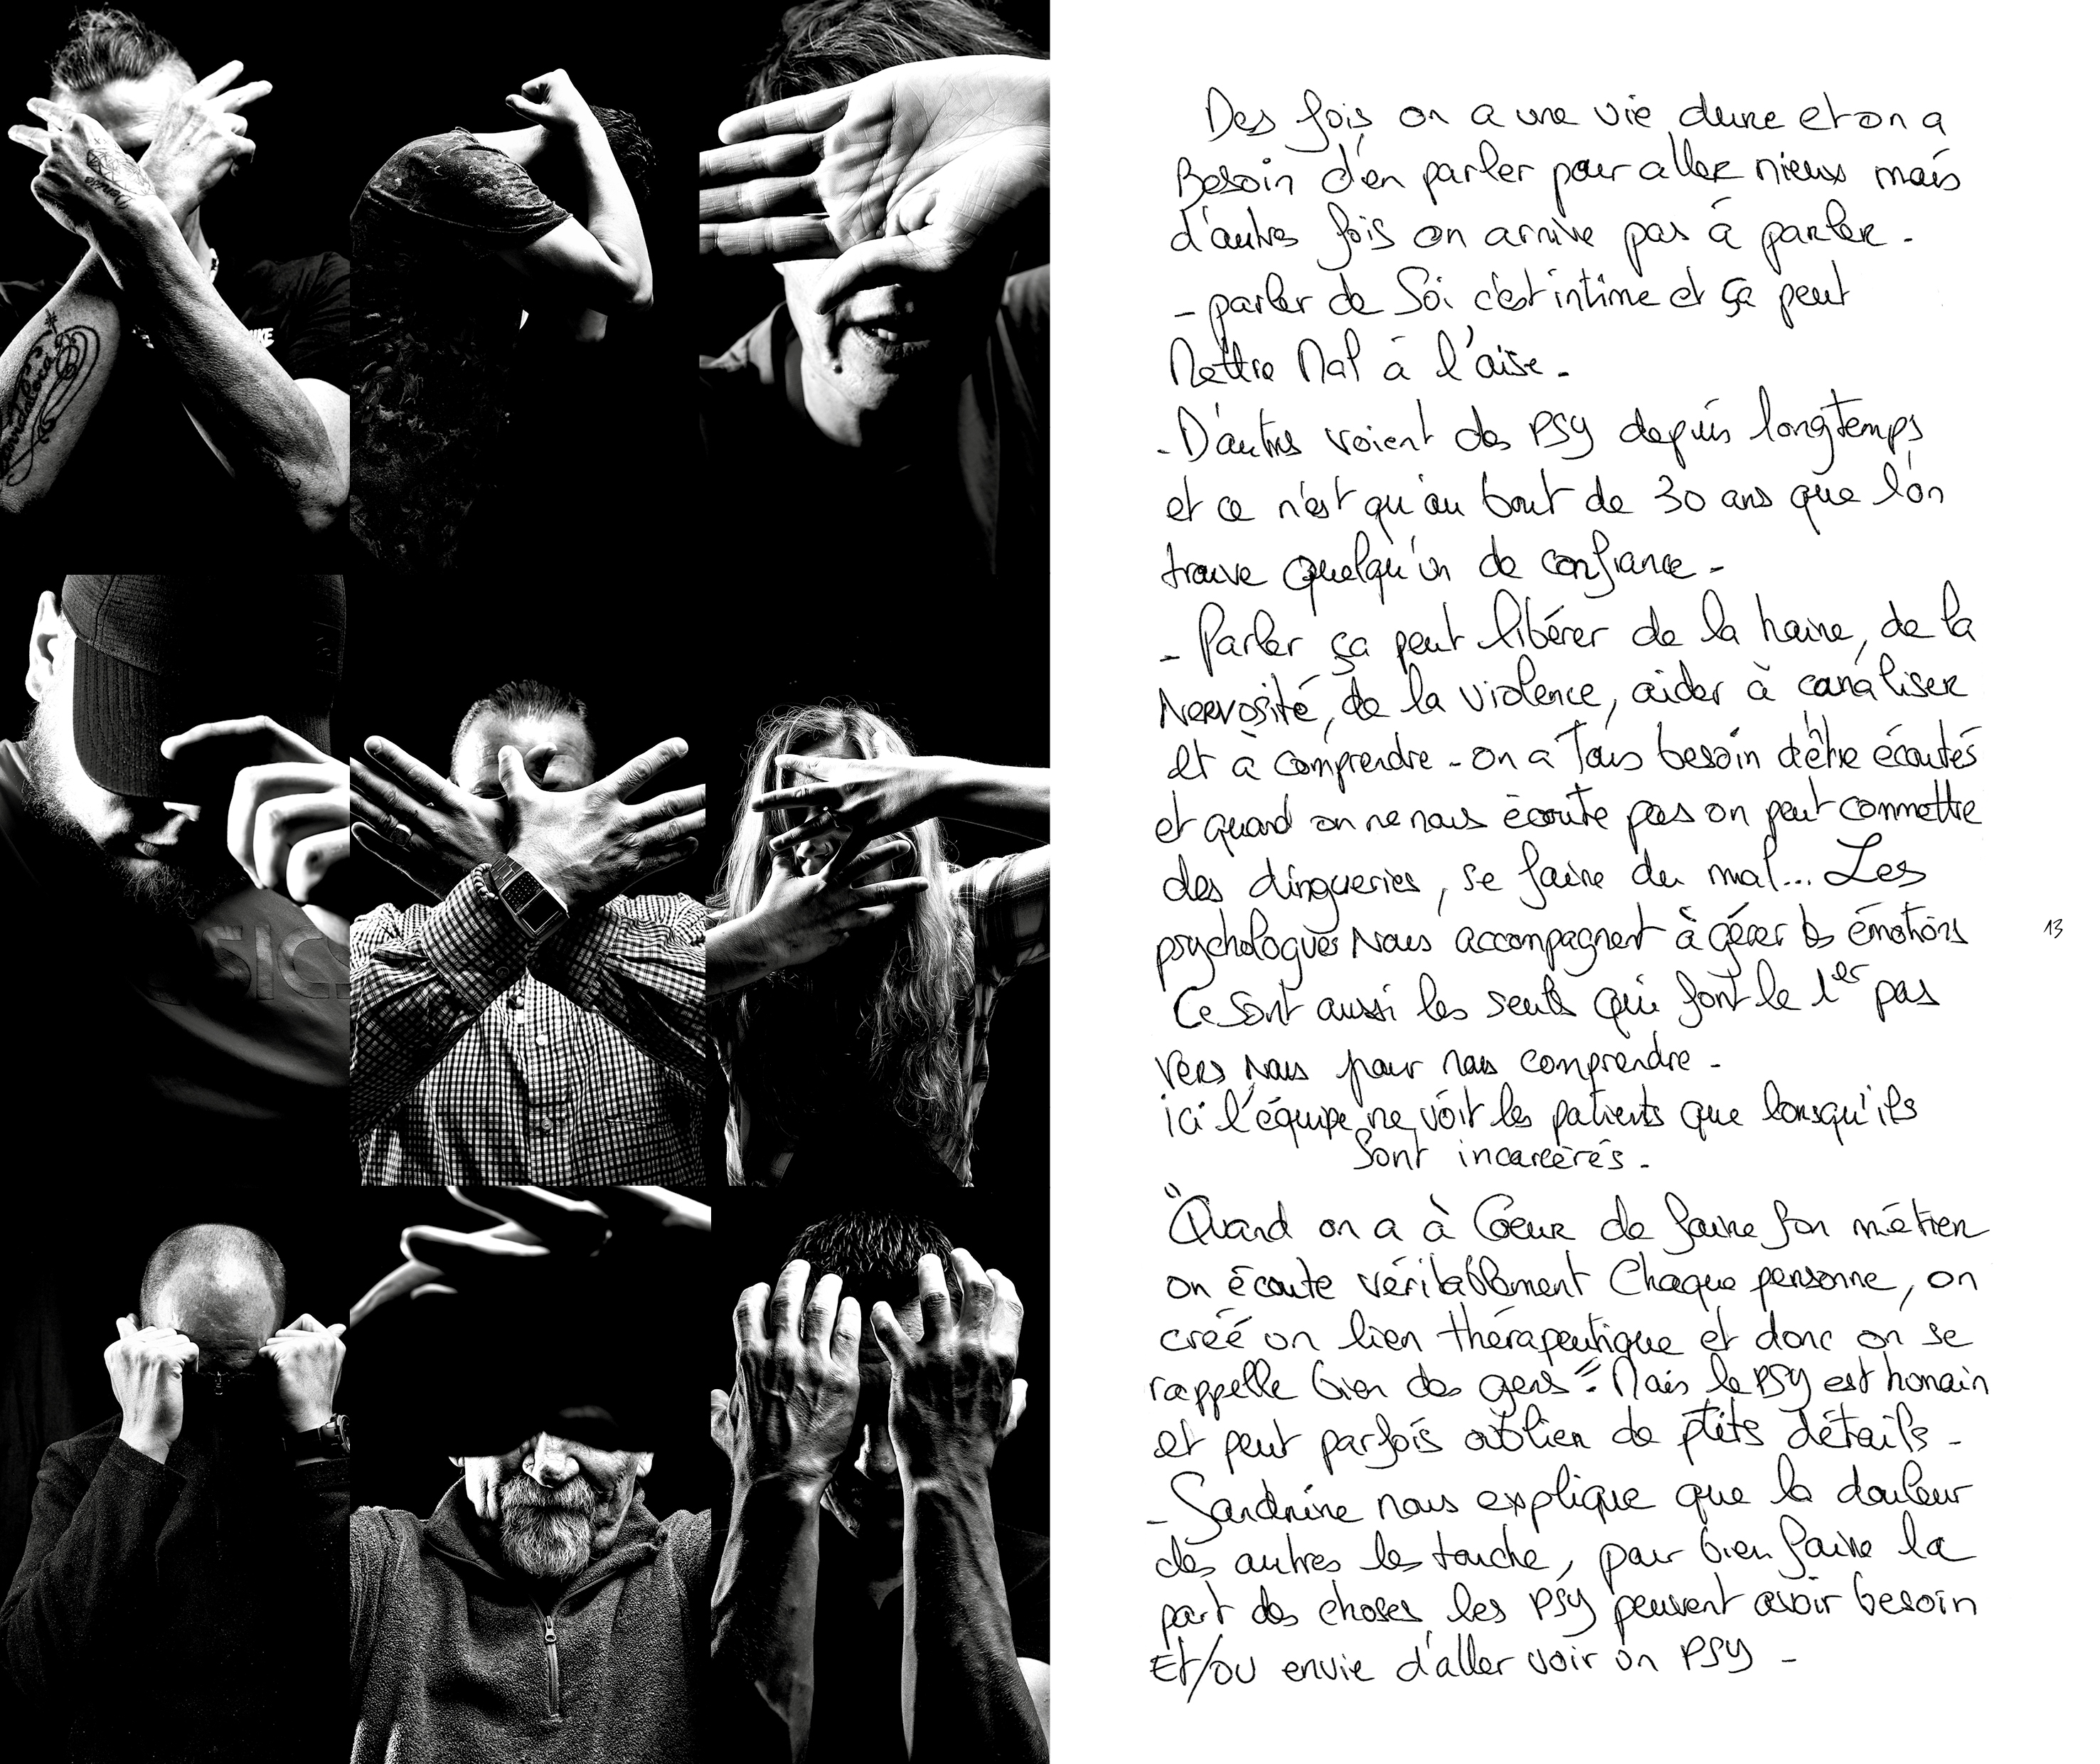 Des fois on a une vie dure et on a
Besoin d'en parler pour aller mieux mais
d'autres fois on arrive pas à parler.
- parler de Soi c'est intime et ça peut
Mettre Mal à l'aise.
- D'autres voient des PSY depuis longtemps
et ce n'est qu'au bout de 30 ans que l'on
trouve quelqu'un de confiance -
- Parler ça peut libérer de la haine, de la
Nervosité, de la violence, aider à canaliser
et à comprendre - on a Tous besoin d'être écoutés
et quand on ne nous écoute pas on peut commettre
des dingueries, se faire du mal... Les
psychologues Nous accompagnent à gérer les émotions
Ce sont aussi les seuls qui font le 1er pas
vers nous pour nous comprendre -
ici l'équipe ne voit les patients que lorsqu'ils
Sont incarcérés -
"Quand on a à Coeur de faire son métier
on écoute véritablement Chaque personne, on
créé un lien thérapeutique et donc on se
rappelle bien des gens". Mais le PSY est humain
et peut parfois oublier de ptits détails -
- Sandrine nous explique que la douleur
des autres les touche, pour bien faire la
part des choses les PSY peuvent avoir besoin
Et/ou envie d'aller voir un PSY -
13
SICS